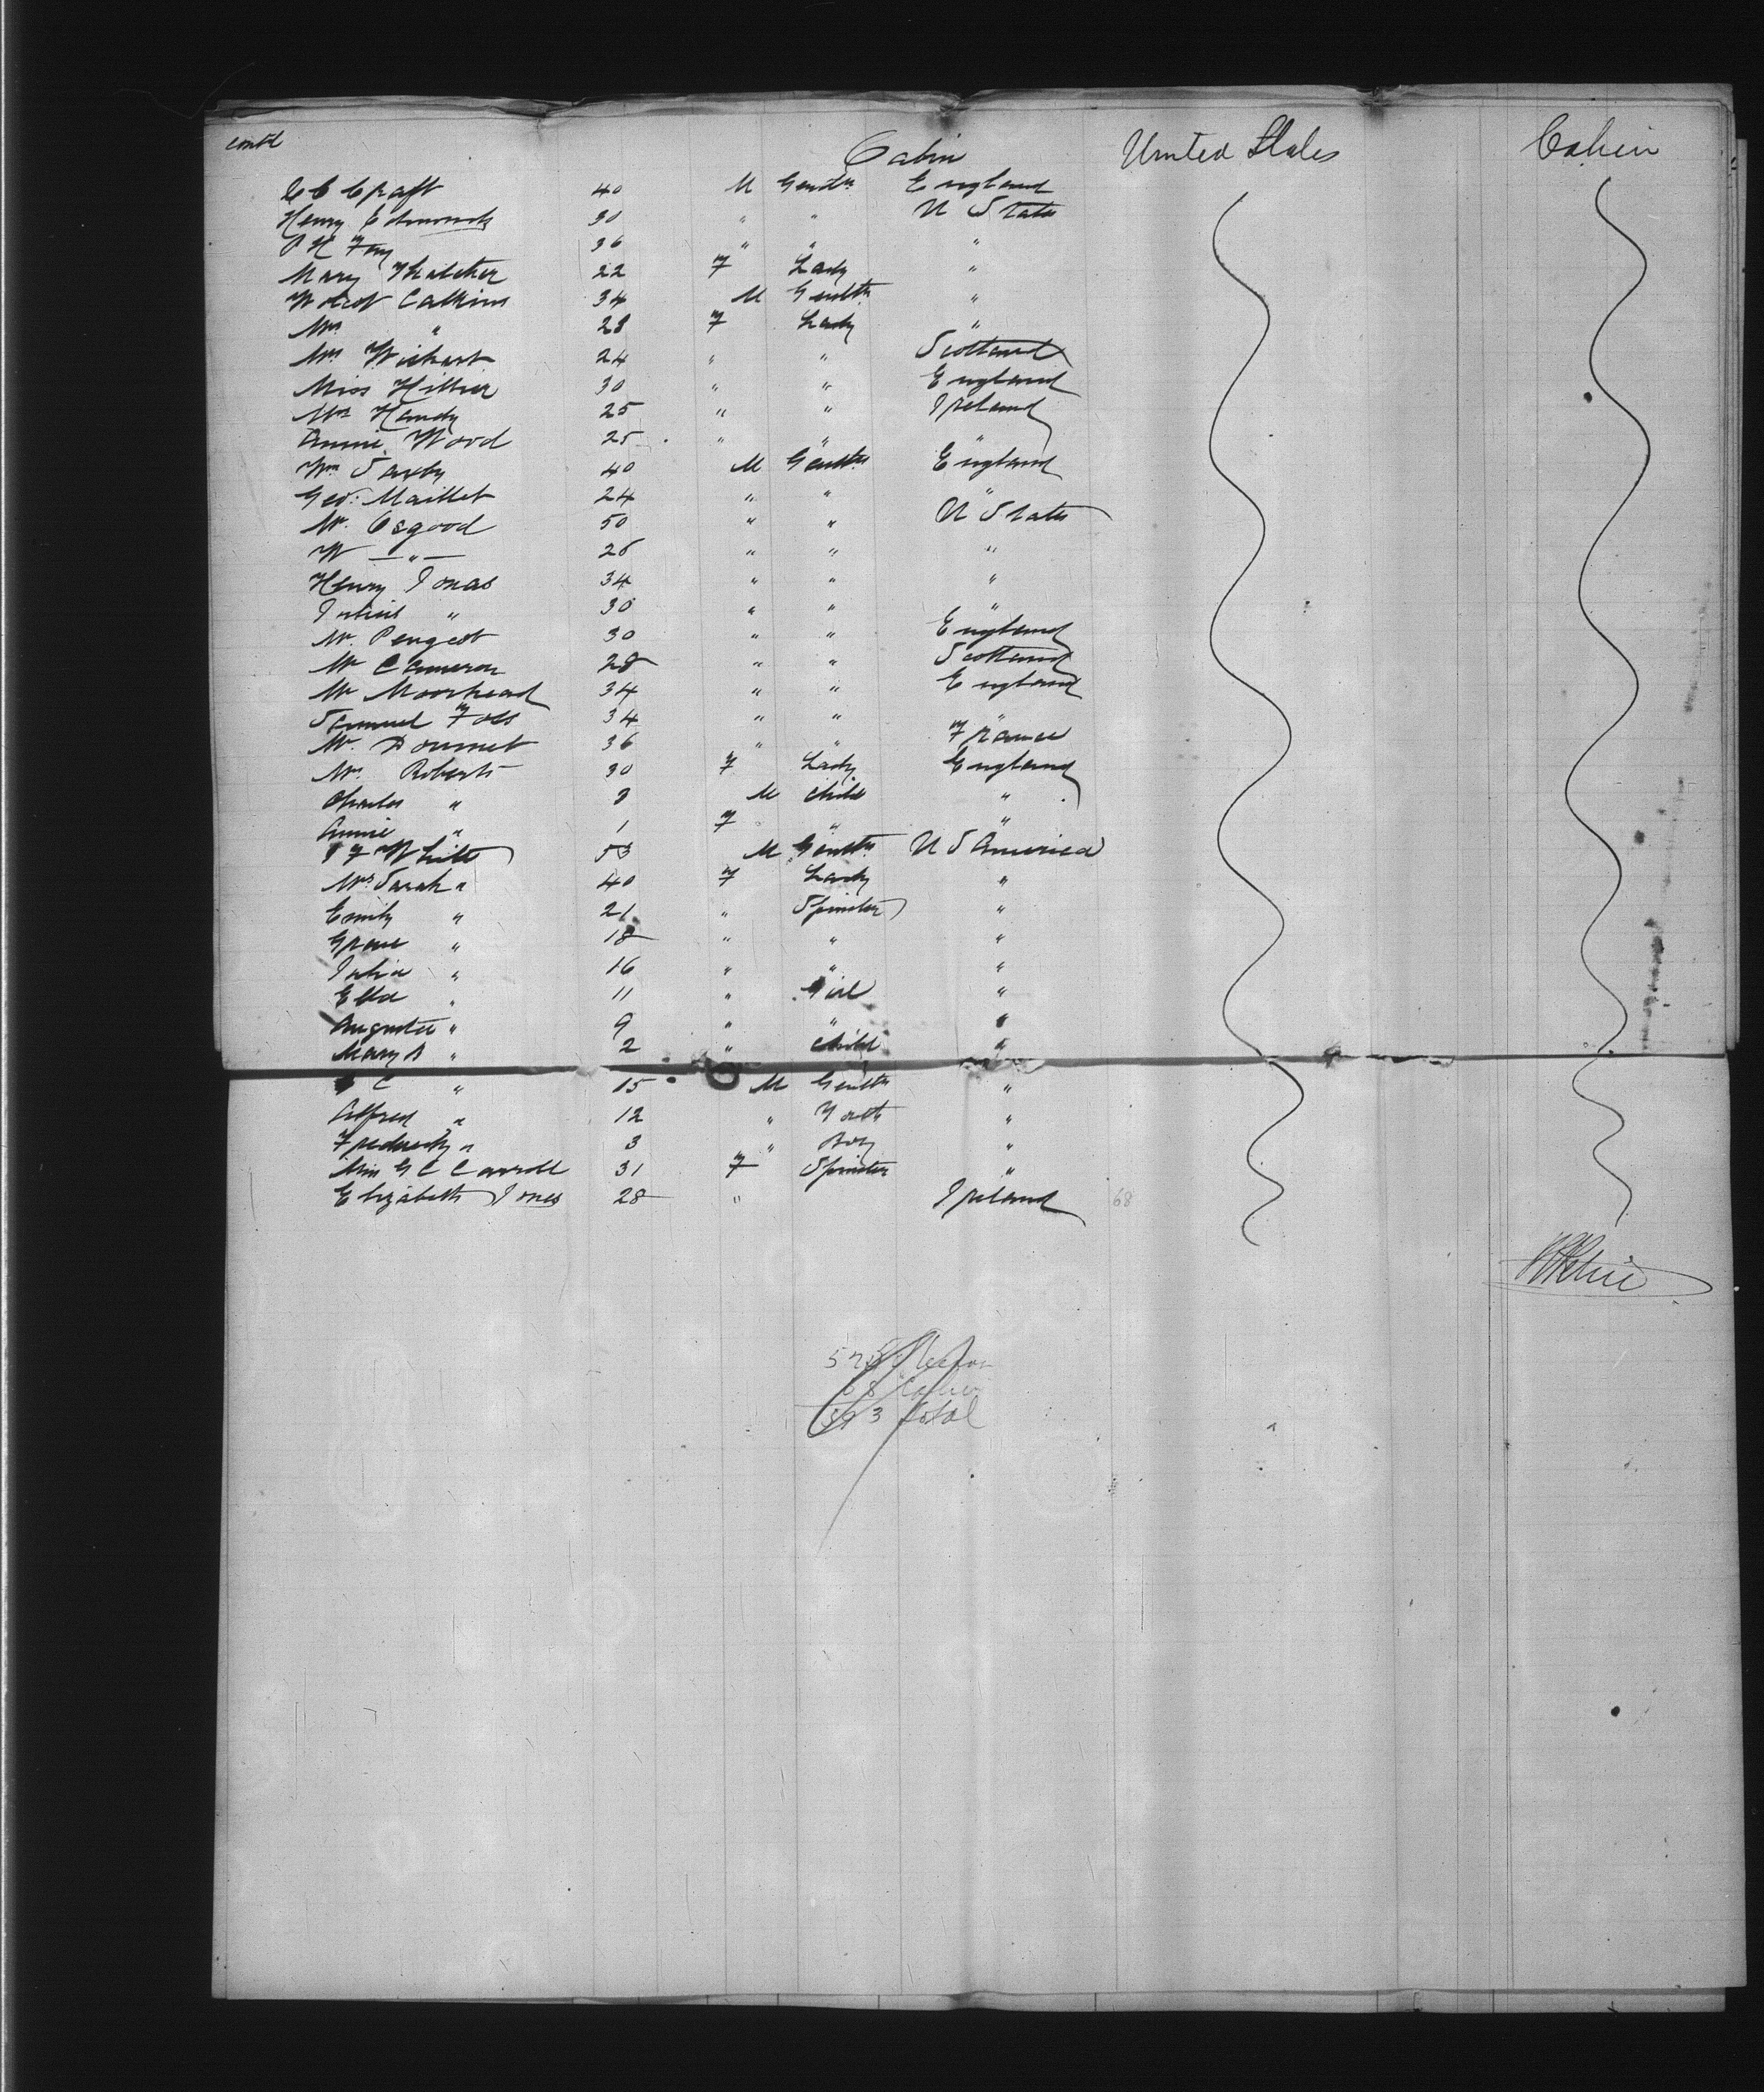 contd Cabin United States Cabin
C C Craft 40 M Gentn England
Henry Edmonds 30 " " U States
P H Fay 36 " " "
Mary Thatcher 22 F Lady "
Calkins 34 M Gentn "
Mrs " 28 F Lady "
Mrs Wishart 24 " " Scotland
Miss Hillier 30 " " England
Mrs Handy 25 " " Ireland
Annie Wood 25 " " "
Wm Saxby 40 M Gentn England
Geo: Maillet 24 " " "
Mr. Osgood 50 " " U States
W —"— 26 " " "
Henry Jonas 34 " " "
Julius " 30 " " "
Mr. Peugeot 30 " " England
Mr Cameron 28 " " Scotland
Mr Moorhead 34 " " England
Samuel Foss 34 " " "
Mr. 36 " " France
Mrs. Roberts 30 F Lady England
Charles " 3 M Child "
Annie " 1 F " "
J F White 53 M Gentn U S America
Mrs Sarah " 40 F Lady "
Emily " 21 " Spinster "
Grace " 18 " " "
Julia " 16 " " "
Ella " 11 " Girl "
Augusta " 9 " " "
Mary A " 2 " Child "
C " 15 M Gentn "
Alfred " 12 " Youth "
Frederick " 3 " Boy "
Miss G C Carroll 31 F Spinster "
Elizabeth Jones 28 " Ireland 68
68 Cabin
593 total